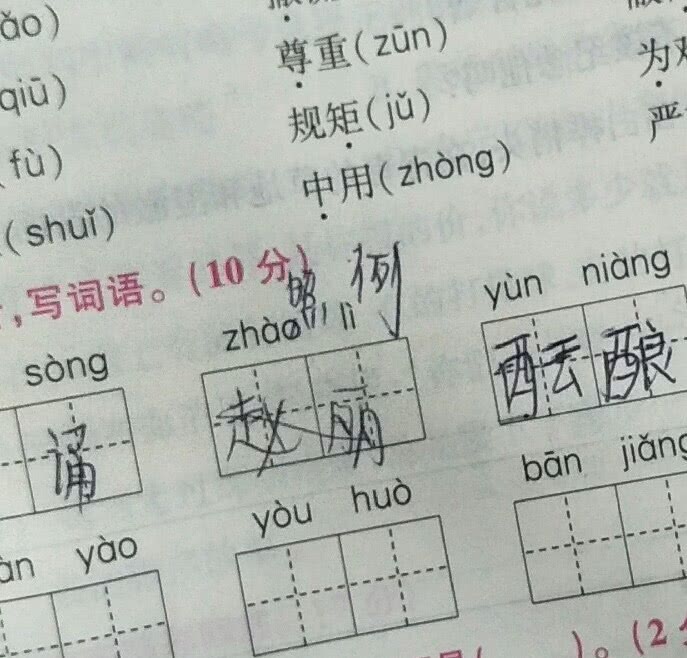 ǎo)
尊重(zūn)
为
qiū)
规矩(jǔ)
严
fù)
中用(zhòng)
(shuǐ)
,写词语。(10 分)
照 例
sòng
zhào lì
yùn niàng
诵
赵 丽
酝 酿
àn yào
yòu huò
bān jiǎng
)。(2